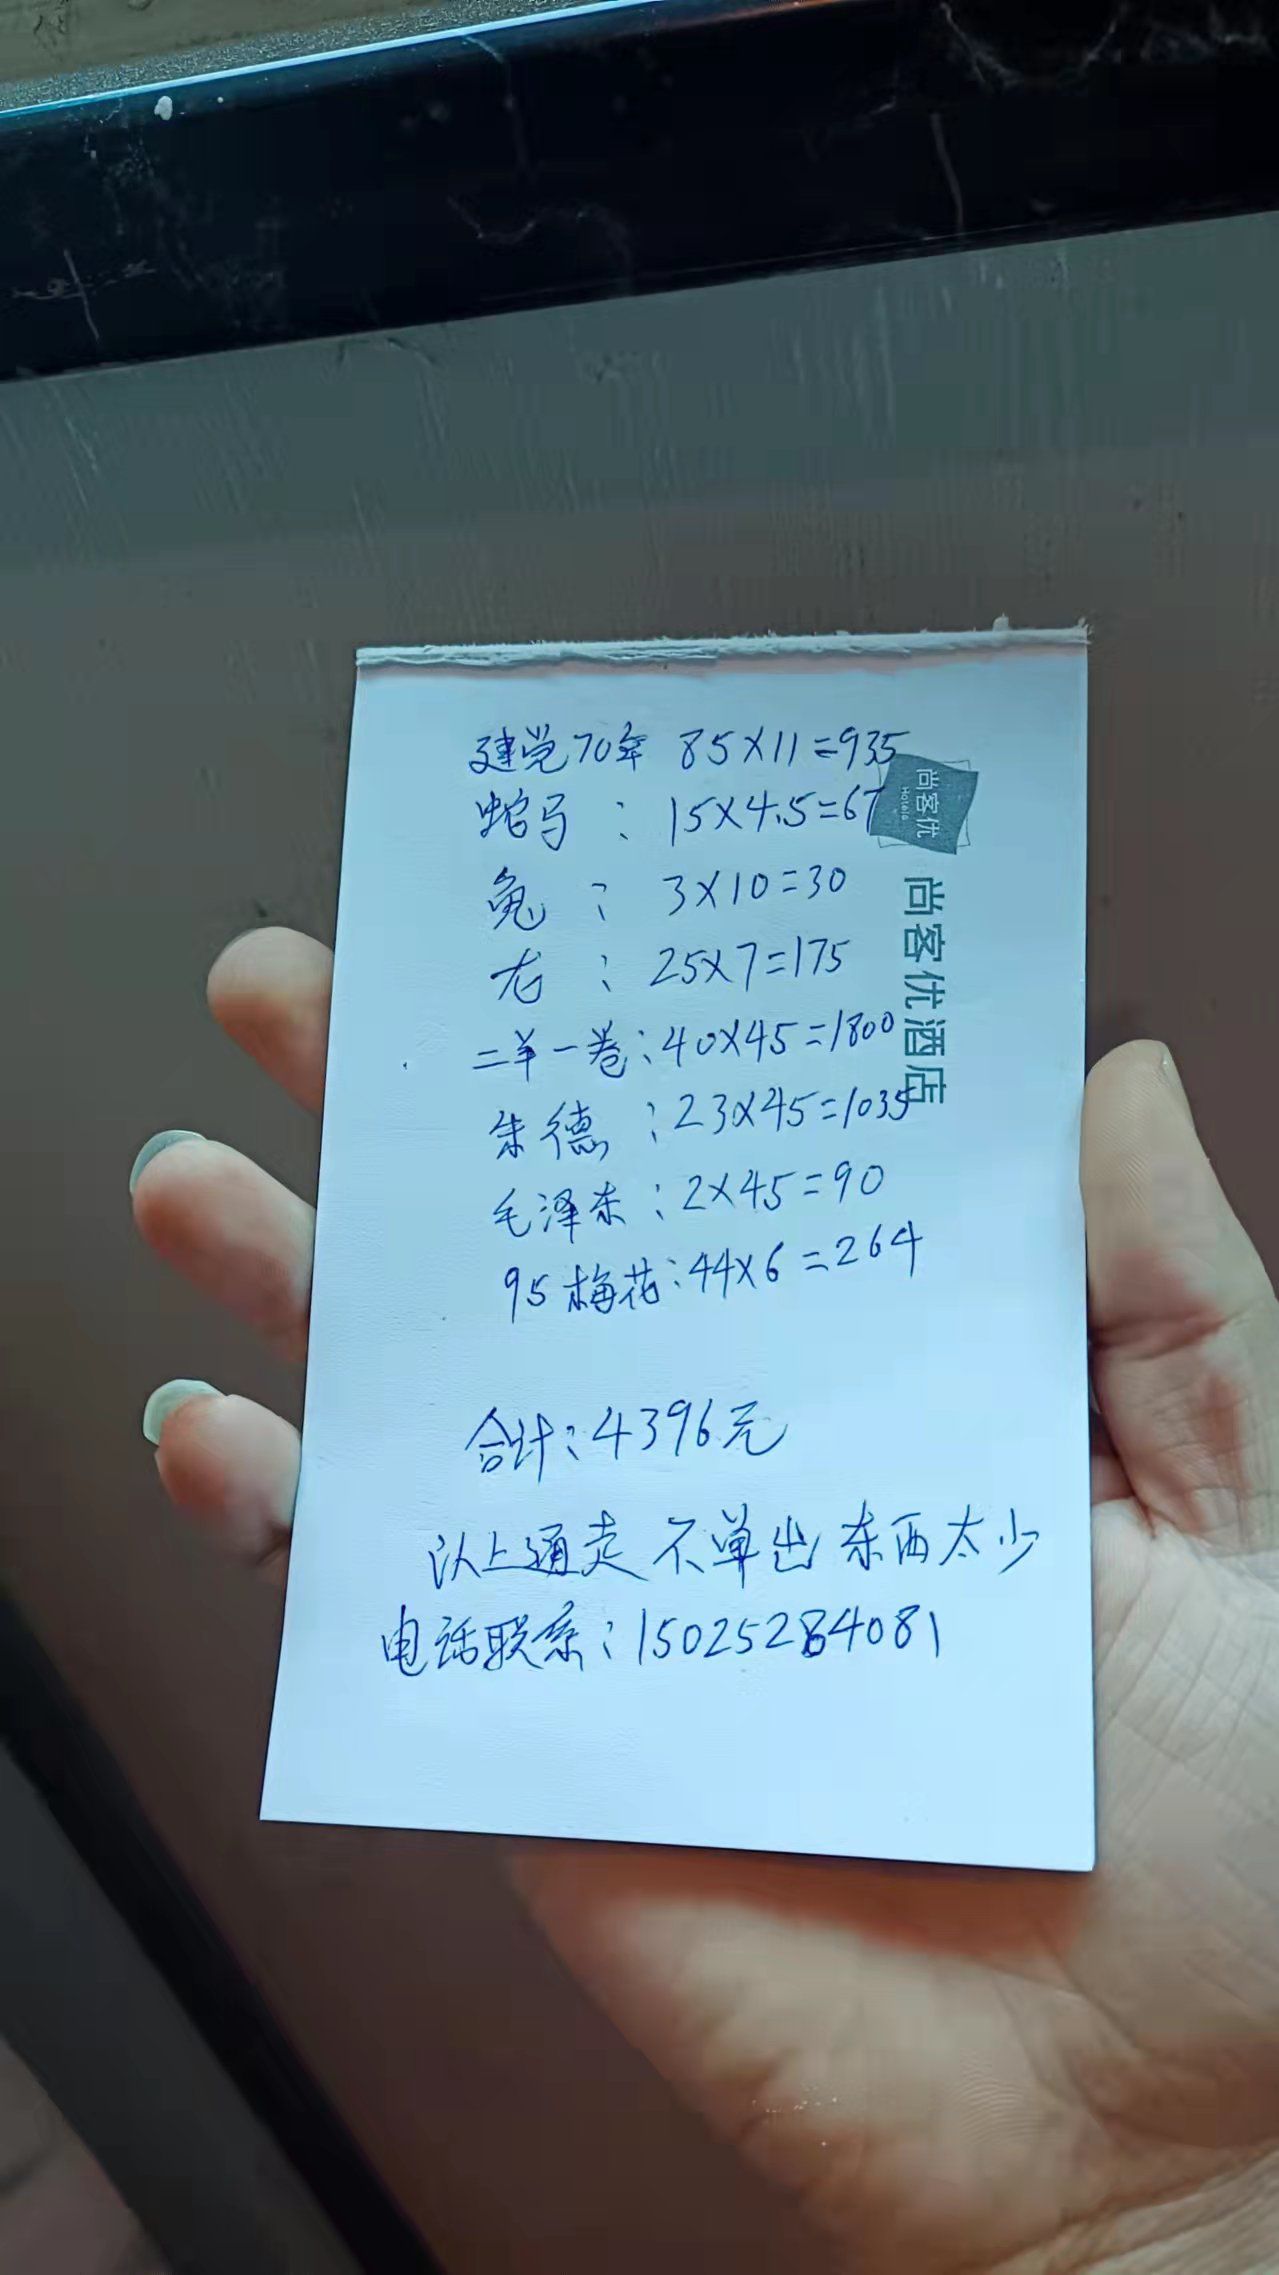 建党70年 85×11=935
蛇马：15×4.5=67
兔：3×10=30
龙：25×7=175
二羊一卷：40×45=1800
朱德：23×45=1035
毛泽东：2×45=90
95梅花：44×6=264
合计：4396元
以上通走 不单出 东西太少
电话联系：15025284081
尚客优
Hotels
尚客优酒店